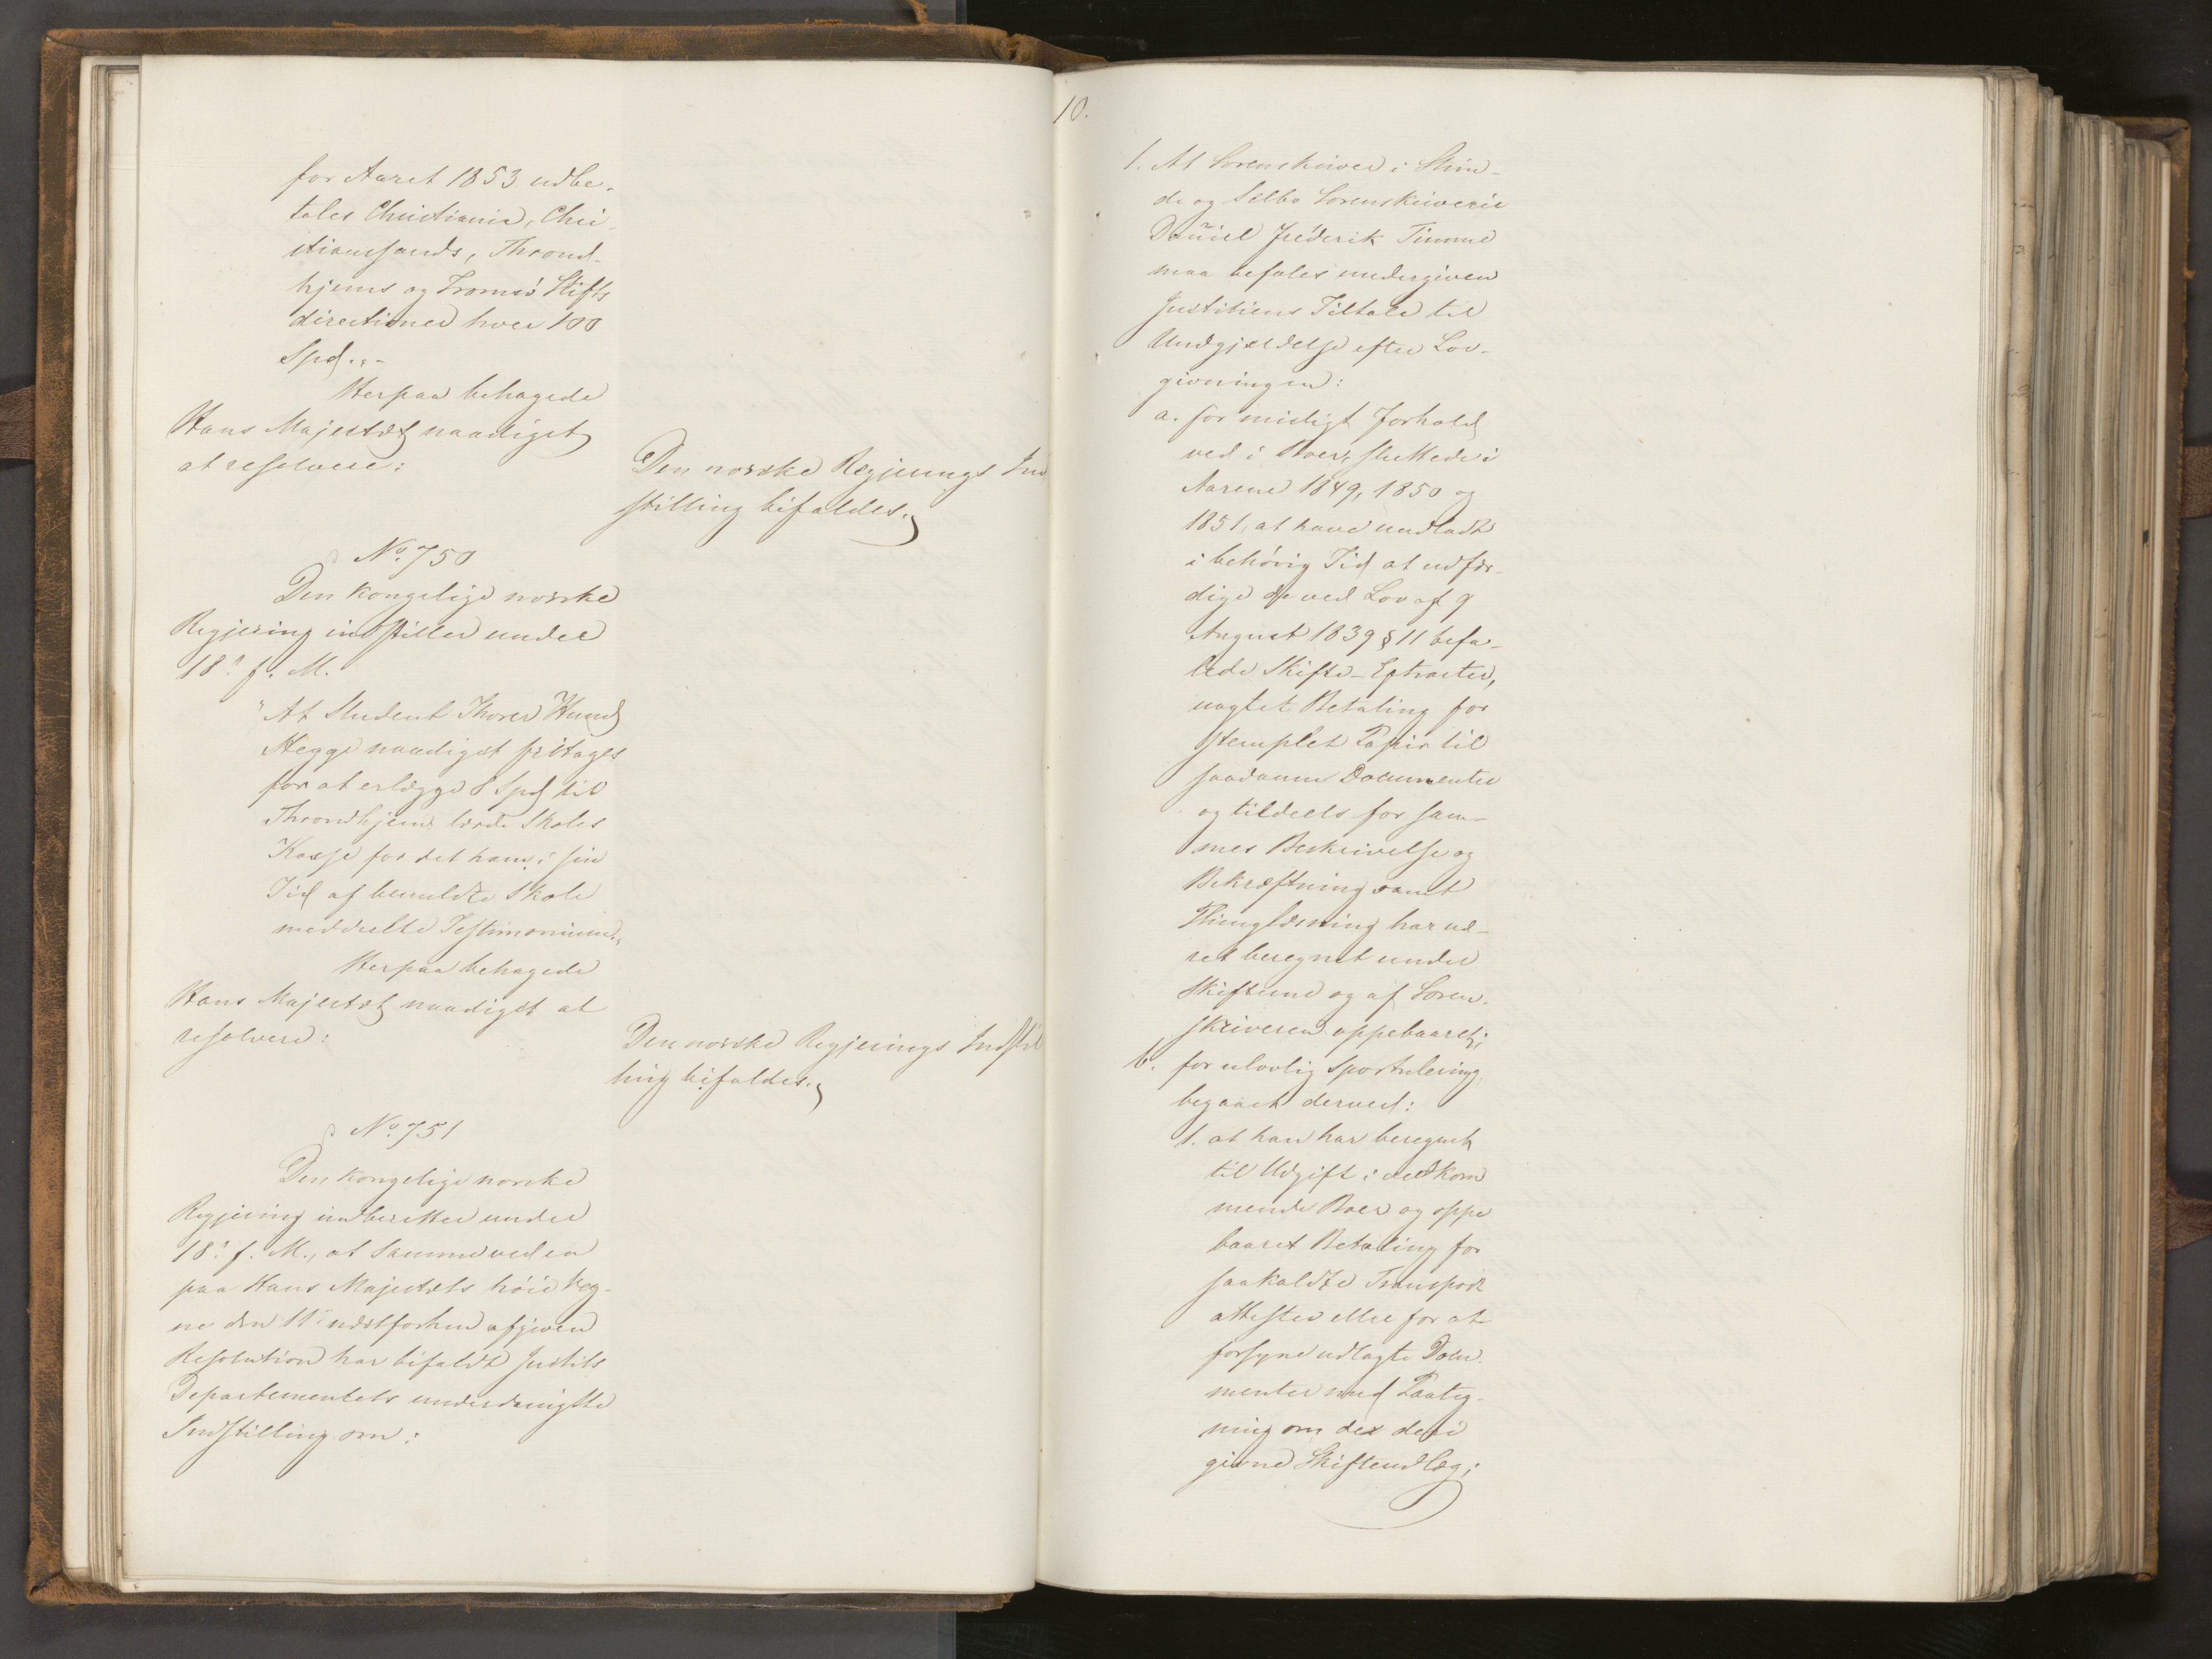 for Aaret 1853 udbe-
tales Christiania, Chri-
stianssands, Thrond-
hjems og Tromsö Stifts
directioner hver 100
Spd..-
Herpaa behagede
Hans Majestæt naadigst
at resolvere:
Den norske Regjerings Ind
stilling bifaldes.
No. 750
Den kongelige norske
Regjering indstiller under
18. f. M.
"At Student Thorer Hund
Hegge naadigst fritages
for at erlægge 8 Spd til
Throndhjems lærde Skoles
Kasse for det ham i sin
Tid af bemeldte Skole
meddeelte Testimonium."
Herpaa behagede
Hans Majestæt naadigst at
resolvere:
Den norske Regjerings Indstil
ling bifaldes.
No. 751
Den kongelige norske
Regjering indberetter under
18. f. M., at Samme ved en
paa Hans Majestæts höie Veg-
ne den 11. næstforhen afgiven
Resolution har bifaldt Justits
Departementets underdanigste
Indstilling om:
10.
1. At Sorenskriver i Strin-
de og Selbo Sorenskriverie
Daniel Frederik Timme
maa befales undergiven
Justitiens Tiltale til
Undgjeldelse efter Lov-
givningen:
a. for misligt Forhold
ved i Boer, sluttede i
Aarene 1849, 1850 og
1851, at have undladt
i behörig Tid at udfær-
dige de ved Lov af 9
August 1839 § 11 befa-
lede Skifte-Extracter,
uagtet Betaling for
stemplet Papir til
saadanne Documenter
og tildeels for sam-
mes Beskrivelse og
Bekræftning samt
Thinglæsning har væ-
ret beregnet under
Skifterne og af Soren-
skriveren oppebaaret;
b. for ulovlig Sportulering,
begaaet derved:
1. at han har beregnet
til Udgift i vedkom
mende Boer og oppe
baaret Betaling for
saakaldte Transport
attester eller for at
forsyne udlagte Docu-
menter med Paateg-
ning om det deri
givne Skifteudlæg;